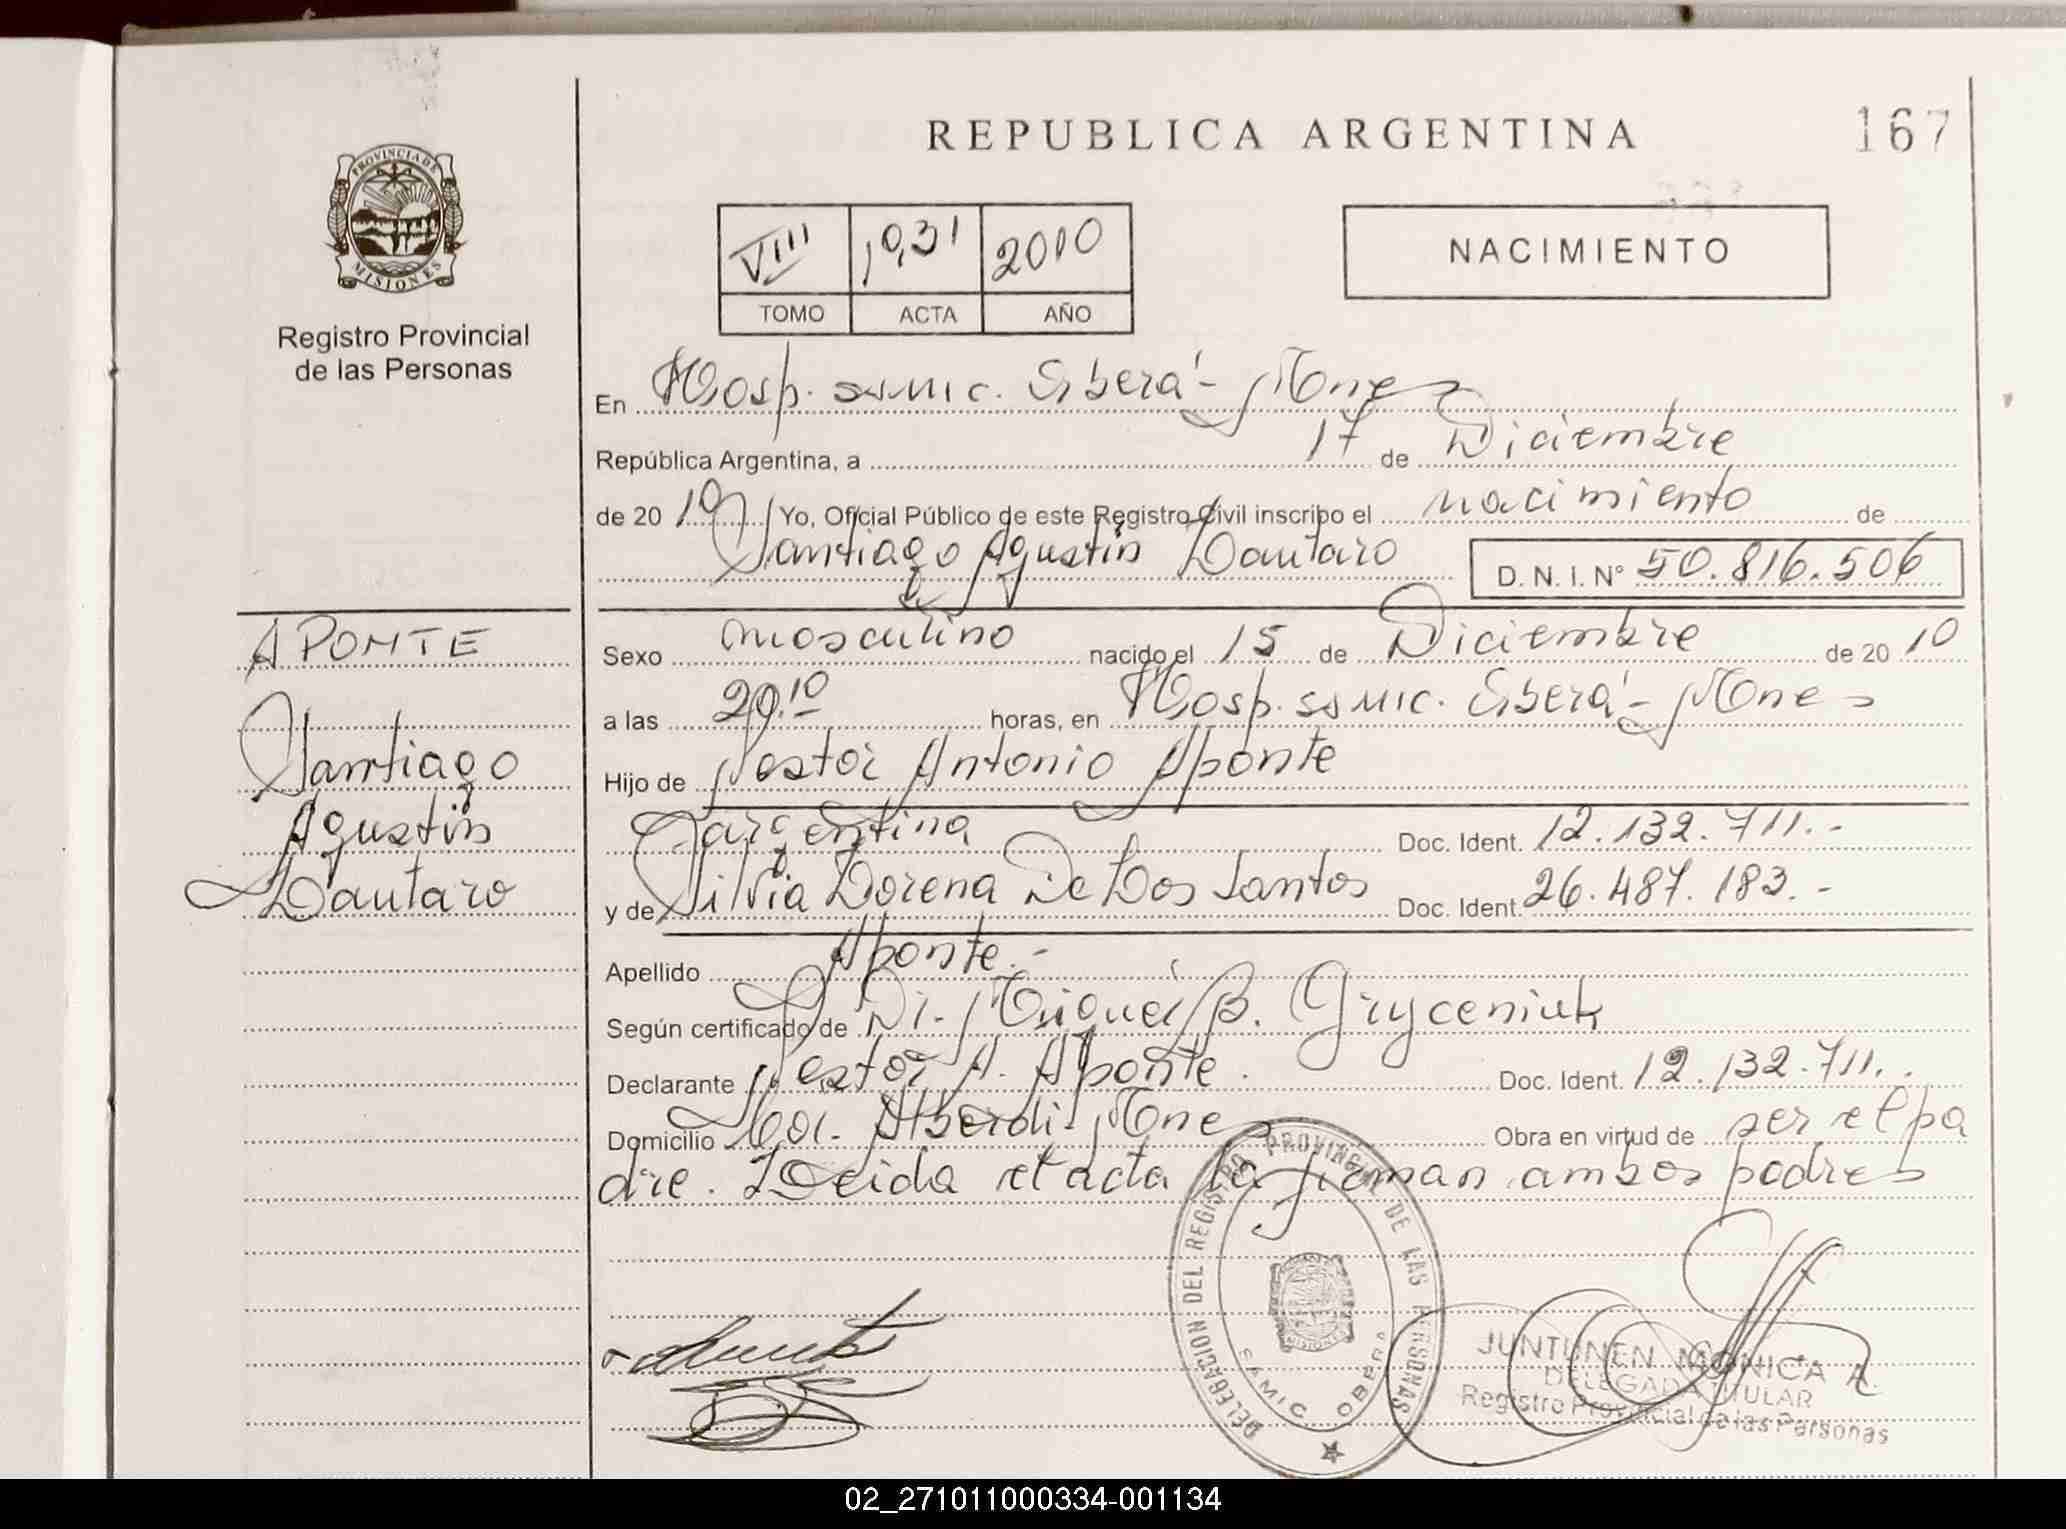 REPUBLICA ARGENTINA
167
PROVINCIA DE
MISIONES
Registro Provincial
de las Personas
VIII 1031 2010
TOMO ACTA AÑO
NACIMIENTO
En Hosp. SAMIC. Oberá - Mnes
República Argentina, a 17 de Diciembre
de 20 10 Yo, Oficial Público de este Registro Civil inscribo el nacimiento de
Santiago Agustin Lautaro D. N. I. N° 50.816.506
APONTE
Santiago
Agustin
Lautaro
Sexo masculino nacido el 15 de Diciembre de 20 10
a las 20.10 horas, en Hosp. SAMIC. Oberá - Mnes
Hijo de Nestor Antonio Aponte
argentina Doc. Ident. 12.132.711.-
y de Silvia Lorena De Los Santos Doc. Ident. 26.487.183.-
Apellido Aponte.-
Según certificado de Dr. Miguel B. Gryceniuk
Declarante Nestor A. Aponte. Doc. Ident. 12.132.711.
Domicilio Alberdi - Mnes Obra en virtud de ser el pa
dre. Leida el acta la firman ambos padres
DELEGACION DEL REGISTRO PROVINCIAL DE LAS PERSONAS
SAMIC OBERA
JUNTUNEN MONICA A.
DELEGADA TITULAR
Registro Provincial de las Personas
02_271011000334-001134